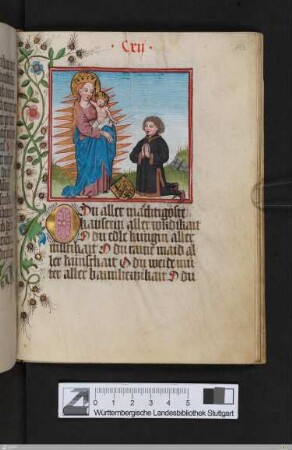 · Cxii ·
Du aller mächtigost
kaiserin aller wirdikait
O du edle küngin aller
O du raine maid al
ler künschait O du werde mu
ter aller barmhertzikait O du
0 1 2 3 4 5
Württembergische Landesbibliothek Stuttgart